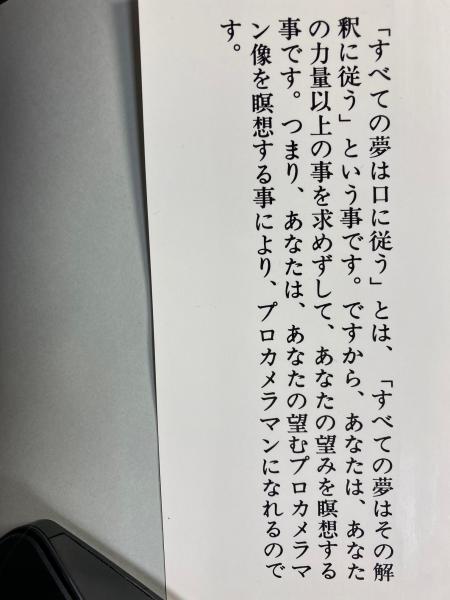 「すべての夢は口に従う」とは、「すべての夢はその解
釈に従う」という事です。ですから、あなたは、あなた
の力量以上の事を求めずして、あなたの望みを瞑想する
事です。つまり、あなたは、あなたの望むプロカメラマ
ン像を瞑想する事により、プロカメラマンになれるので
す。